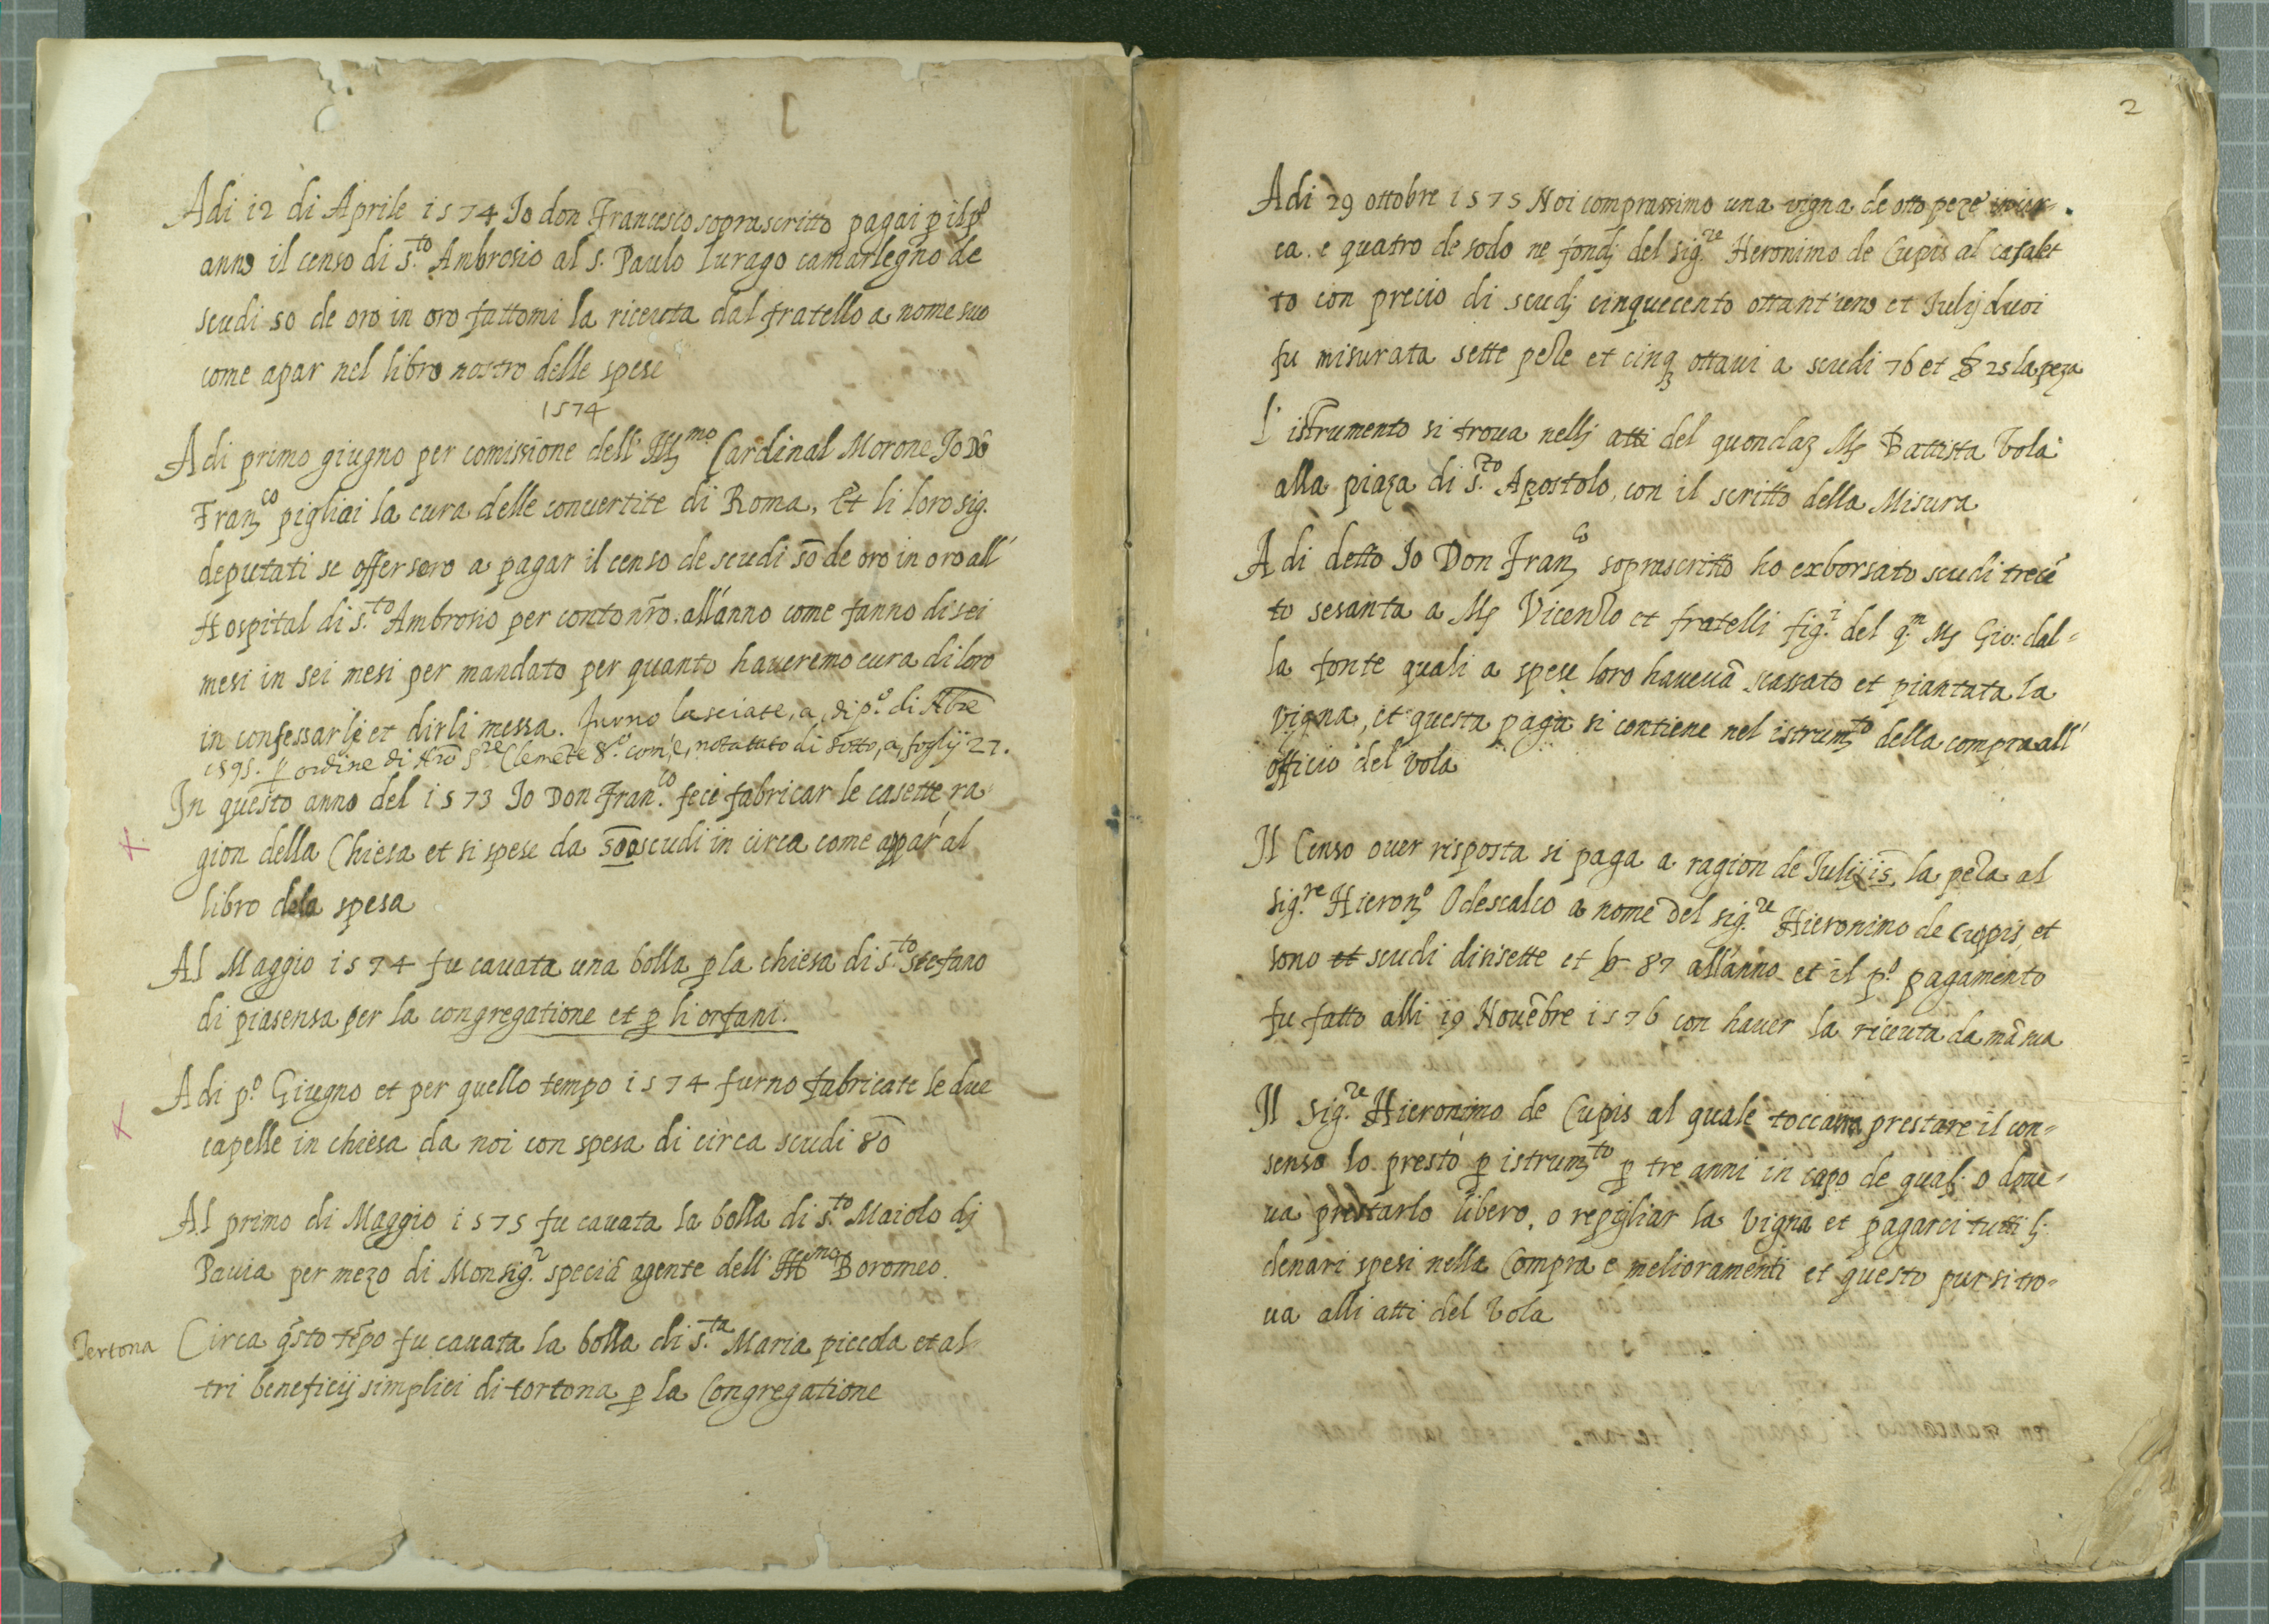 Adi 12 di Aprile 1574 Io don Francesco soprascritto pagai p il pº
anno il censo di s.to Ambrosio al s. Paulo Lurago camarlegno de
scudi 50 de oro in oro fattomi la riceuta dal fratello a nome suo
come apar nel libro nostro delle spese
1574
Adi primo giugno per comissione dell' Illmo Cardinal Morone Io Dõ
Franco pigliai la cura delle conuertite di Roma, Et li loro sig.
deputati se offersero a pagar il censo de scudi 50 de oro in oro all'
Hospital di s.to Ambrosio per conto nr̃o. all'anno come fanno di sei
mesi in sei mesi per mandato per quanto haueremo cura di loro
in confessarle et dirli messa. furno lasciate, a, di pº. di
1595. p ordine di Nrõ Sre Clemẽte 8.º com'è, notattato di sotto, a, foglij 27.
In questo anno del 1573 Io Don Fran.co feci fabricar le casette ra-
gion della Chiesa et si spese da 500 scudi in circa come appar' al
libro dela spesa
Al Maggio 1574 fu cauata una bolla p la chiesa di s.to Stefano
di piasensa per la congregatione et p li orfani.
Adi pº. Giugno et per quello tempo 1574 furno fabricate le due
capelle in chiesa da noi con spesa di circa scudi 80
Al primo di Maggio 1575 fu cauata la bolla di s.to Maiolo dj
Pauia per mezo di Monsig.r speciã agente dell' Illmo Boromeo.
Tertona
Circa q̃sto tẽpo fu cauata la bolla di s.ta Maria piccola et al-
tri beneficij simplici di tortona p la Congregatione
2
Adi 29 ottobre 1575 Noi comprassimo una vigna de otto peze in cir-
ca. e quatro de sodo ne fondj del sig.re Heronimo de Cupis al casalet
to con precio di scudj cinquecento ottant'uno et Iulij duoi
fu misurata sette peze et cinq ottaui a scudi 76 et b 25 la peza
L'istrumento si troua nellj atti del quondaz Mr Battista Vola
alla piaza di s.to Apostolo, con il scritto della Misura
Adi detto Io Don Franco soprascritto ho exborsato scudi trecẽ
to sesanta a Mr Vicenzo et fratelli fig.i del q.m Mr Gio: dal-
la fonte quali a spese loro haueuã scassato et piantata la
vigna, et questa paga si contiene nel istrumto della compra all'
officio del vola
Il Censo ouer risposta si paga a ragion de Iulij 15 la peza al
sig.re Hieronº Odescalco a nome del sig.re Hieronimo de Cupis, et
sono et scudi dicisette et b 87 all'anno et il pº. pagamento
fu fatto alli 19 Nouẽbre 1576 con hauer la riceuta da mã sua
Il sig.re Hieronimo de Cupis al quale toccaua prestare il con-
senso lo prestò p istrumto p tre anni in capo de quali o doue-
ua prestarlo libero, o repigliar la vigna et pagarci tutti li
denari spesi nella Compra e melioramenti et questo pur si tro-
ua alli atti del Vola